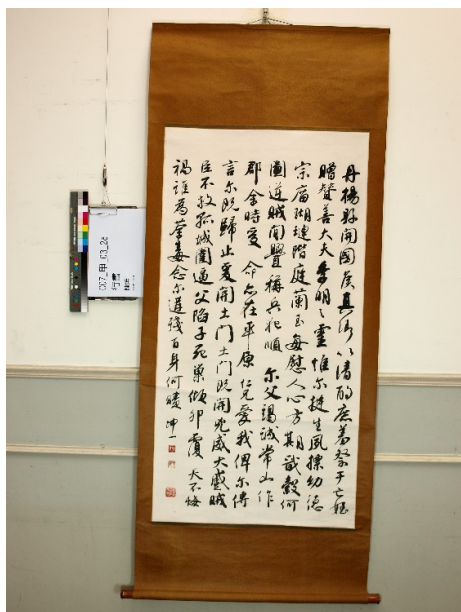 丹楊縣開國侯真卿以清酌庶羞祭于亡姪
贈贊善大夫季明之靈惟尔挺生夙標幼德
宗廟瑚璉階庭蘭玉每慰人心方期戩穀何
圖逆賊閒釁稱兵犯順尔父竭誠常山作
郡余時受命亦在平原仁兄愛我俾尔傳
言尔既歸止爰開土門土門既開兇威大蹙賊
臣不救孤城圍逼父陷子死巢傾卵覆天不悔
禍誰為荼毒念尔遘殘百身何贖坤一
行書